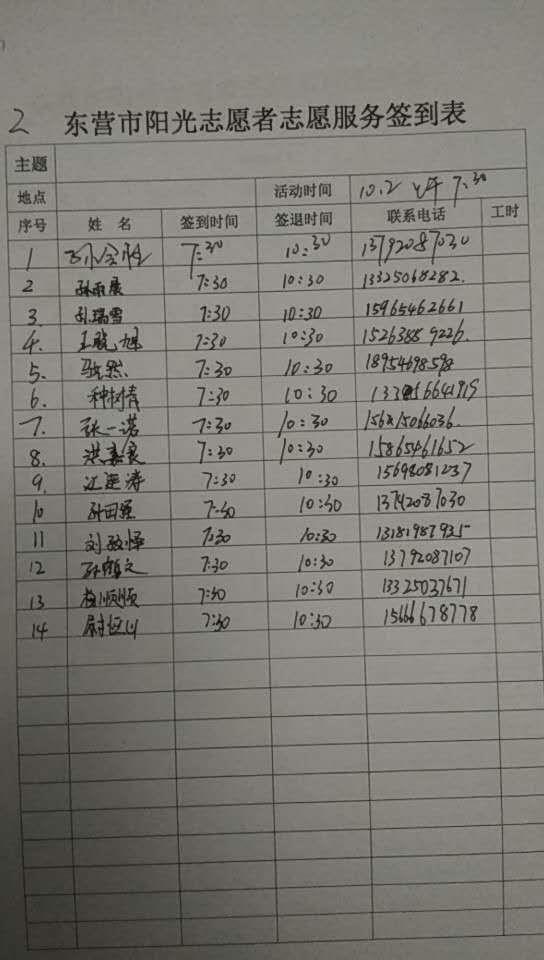 2 东营市阳光志愿者志愿服务签到表
主题
地点 活动时间 10.2 上午 7:30
序号 姓名 签到时间 签退时间 联系电话 工时
1 7:30 10:30 13792087030
2 孙雨晨 7:30 10:30 13325068282.
3. 孙瑞雪 7:30 10:30 15965462661
4. 王晓旭 7:30 10:30 15263889226.
5. 7:30 10:30 18954698598
6. 种树情 7:30 10:30
7. 张一诺 7:30 10:30
8. 洪嘉良 7:30 10:30 15865461652
9. 江延涛 7:30 10:30 15698081237
10 7:30 10:30 13742087030
11 刘 7:30 10:30 13181987935
12 7:30 10:30 13792087107
13 顺顺 7:30 10:30 13325037671
14 7:30 10:30 15666678778